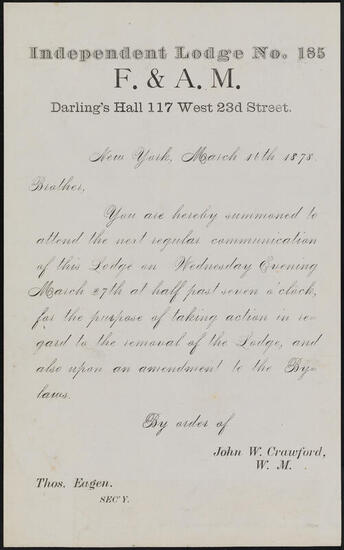 Independent Lodge No. 185
F. & A. M.
Darling's Hall 117 West 23d Street.
New York, March 16th 1878.
Brother,
You are hereby summoned to
attend the next regular communication
of this Lodge on Wednesday Evening
March 27th at half past seven o'clock,
for the purpose of taking action in re-
gard to the removal of the Lodge, and
also upon an amendment to the By-
laws.
By order of
John W. Crawford,
W. M.
Thos. Eagen.
SEC'Y.